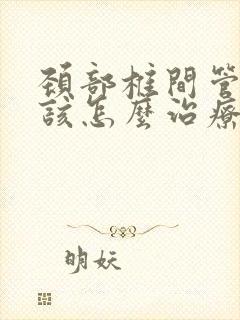 頚部椎間管
該怎麼治療
明妖